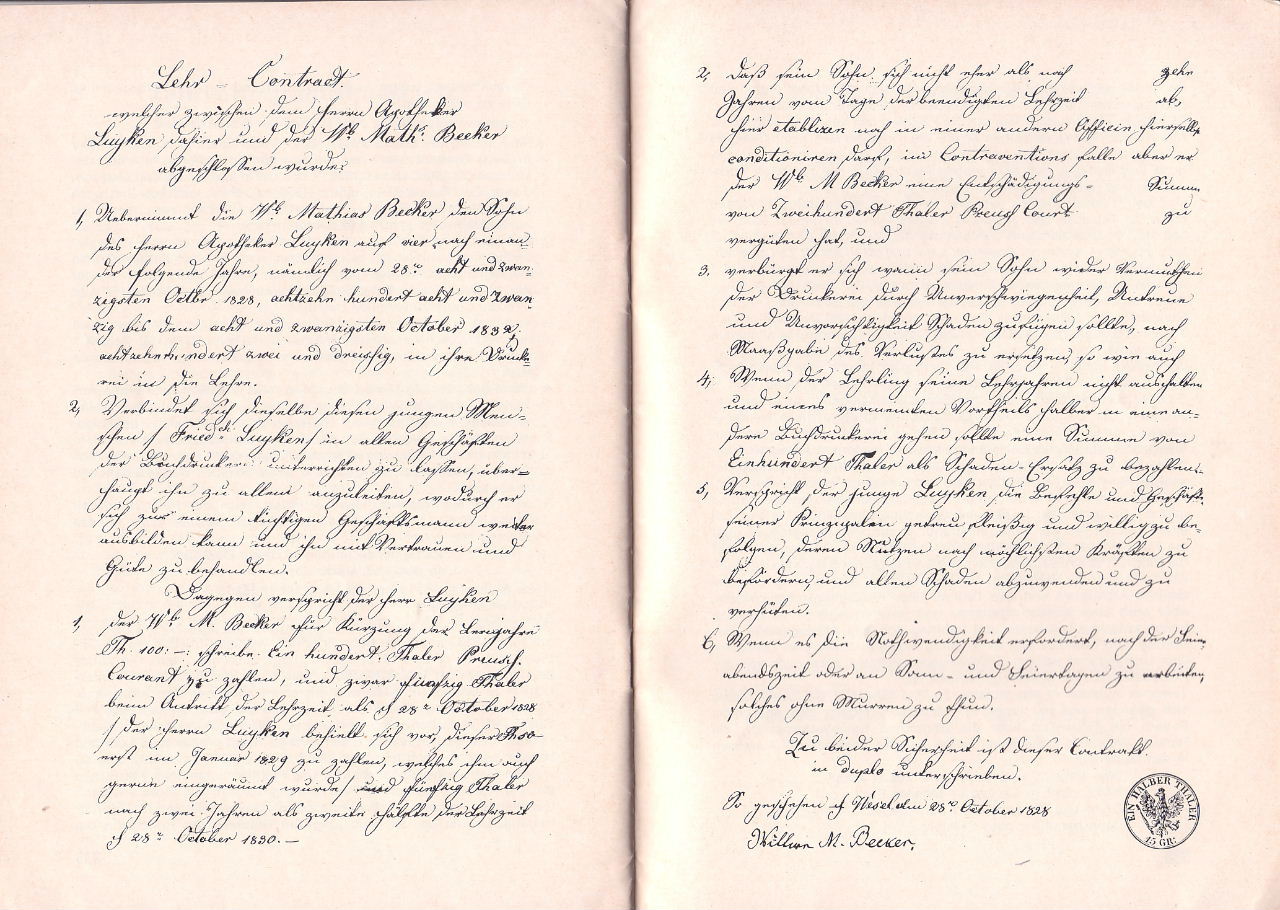 Lehr = Contract.
welcher zwischen dem Herrn Apotheker
Luyken dahier und der Wb. Math: Becker
abgeschlossen wurde:
1, Uebernimmt die Wb. Mathias Becker den Sohn
des Herrn Apotheker Luyken auf vier nach einan-
der folgende Jahre, nämlich vom 28n acht und zwan-
zigsten Octbr. 1828, achtzehn hundert acht und zwan-
zig bis dem acht und zwanzigsten October 1832.
achtzehnhundert zwei und dreissig, in ihre Drucke-
rei in die Lehre.
2, Verbindet sich dieselbe diesen jungen Men-
schen / Friedch Luyken / in allen Geschäften
der Buchdruckerei unterrichten zu lassen, über-
haupt ihn zu allem anzuleiten, wodurch er
sich zur einem tüchtigen Geschäftsmann weiter
ausbilden kann und ihn mit Vertrauen und
Güte zu behandlen.
Dagegen verspricht der Herr Luyken
1, der Wb. M. Becker für Kürzung der Lerejahre
Th. 100:-: schreibe Ein hundert Thaler Preusch.
Courant zu zahlen, und zwar fünfzig Thaler
beim Antritt der Lehrzeit als d 28n October 1828
/ der Herrn Luyken behielt sich vor, dieser Th 50
erst im Januar 1829 zu zahlen, welches ihm auch
gerne eingeräumt wurde / und fünfzig Thaler
nach zwei Jahren als zweite Hälfte der Lehrzeit
d 28n October 1830. —
2, daß sein Sohn sich nicht eher als nach zehn
Jahren vom Tage der beendigten Lehrzeit ab,
hier etabliren noch in einer andern Officin hierselbst
conditioniren darf, im Contraventions Falle aber er
der Wb. M Becker eine Entschädigungs- Summe
von Zweihundert Thaler Preusch Court zu
vergüten hat, und
3. verbürgt er sich wann sein Sohn wider Vermuthen
der Druckerei durch Unverschwiegenheit, Untreue
und Unvorsichtigkeit Schaden zufügen sollte, nach
Maaßgabe des Verlustes zu ersetzen, so wie auch
4, Wenn der Lehrling seine Lehrjahren nicht aushalten
und eines vermeinten Vortheils halber in eine an-
dere Buchdruckerei gehen sollte eine Summe von
Einhundert Thaler als Schaden-Ersatz zu bezahlen.
5, Verspricht der junge Luyken, die Befehle und Geschäfte
seiner Prinzipalen getreu fleißig und willig zu be-
folgen, deren Nutzen nach möglichsten Kräften zu
befördern, und allen Schaden abzuwenden und zu
verhüten.
6, Wenn es die Nothwendigkeit erfordert, nach der Feier-
abendszeit oder an Sonn- und Feiertagen zu arbeiten,
solches ohne Murren zu thun.
Zu beider Sicherheit ist dieser Contrakt
in duplo unterschrieben.
So geschehen d Wesel am 28n October 1828
Wittwe M. Becker.
EIN HALBER THALER
15 GR: